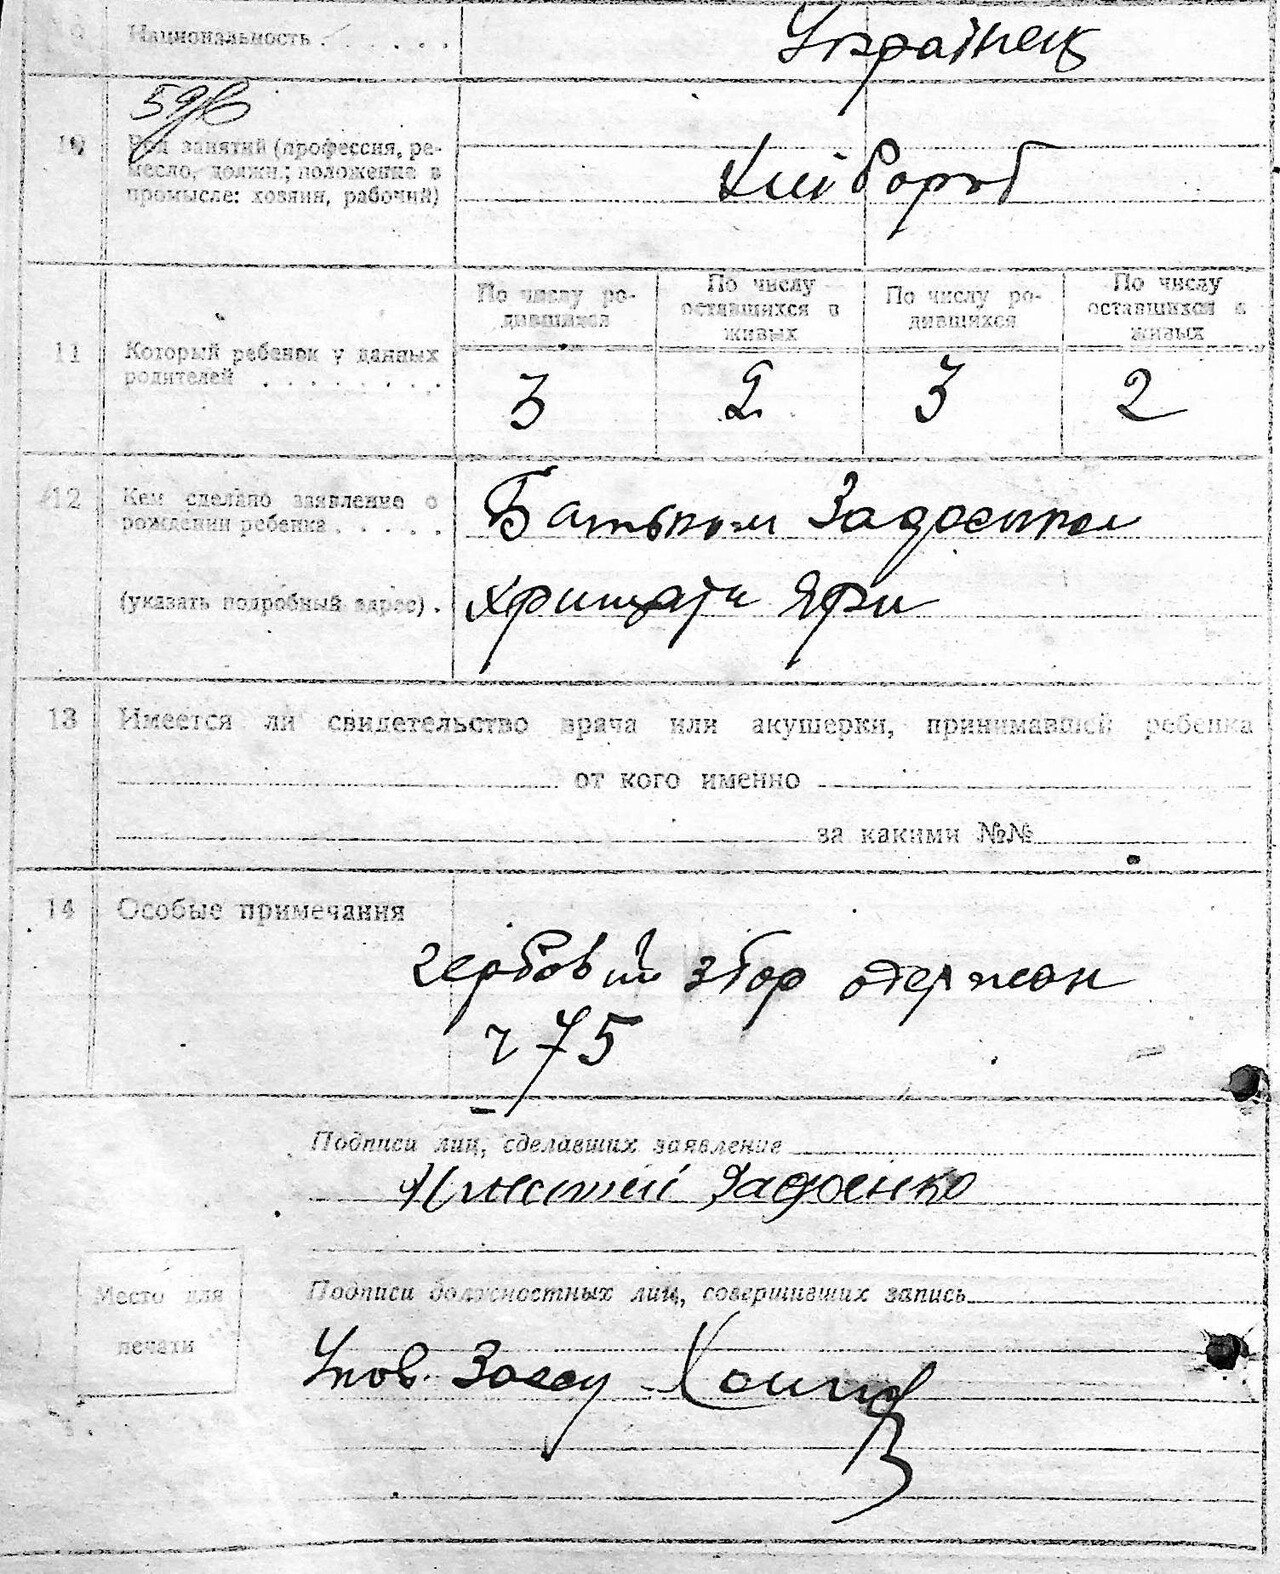 Национальность
Українець
10
Род занятий (профессия, ре-
месло, должн.; положение в
промысле: хозяин, рабочий)
Хлібороб
По числу ро-
дившихся
По числу
оставшихся в
живых
По числу ро-
дившихся
По числу
оставшихся в
живых
11 Который ребенок у данных
родителей
3 2 3 2
12 Кем сделано заявление о
рождении ребенка
Батьком Задоєнком
(указать подробный адрес)
Хрищаті Яри
13 Имеется ли свидетельство врача или акушерки, принимавшей ребенка
от кого именно
за какими №№
14 Особые примечания
гербовий збор одержан
75
Подписи лиц, сделавших заявление
Задоенко
Место для
печати
Подписи должностных лиц, совершивших запись
Упов. Загсу